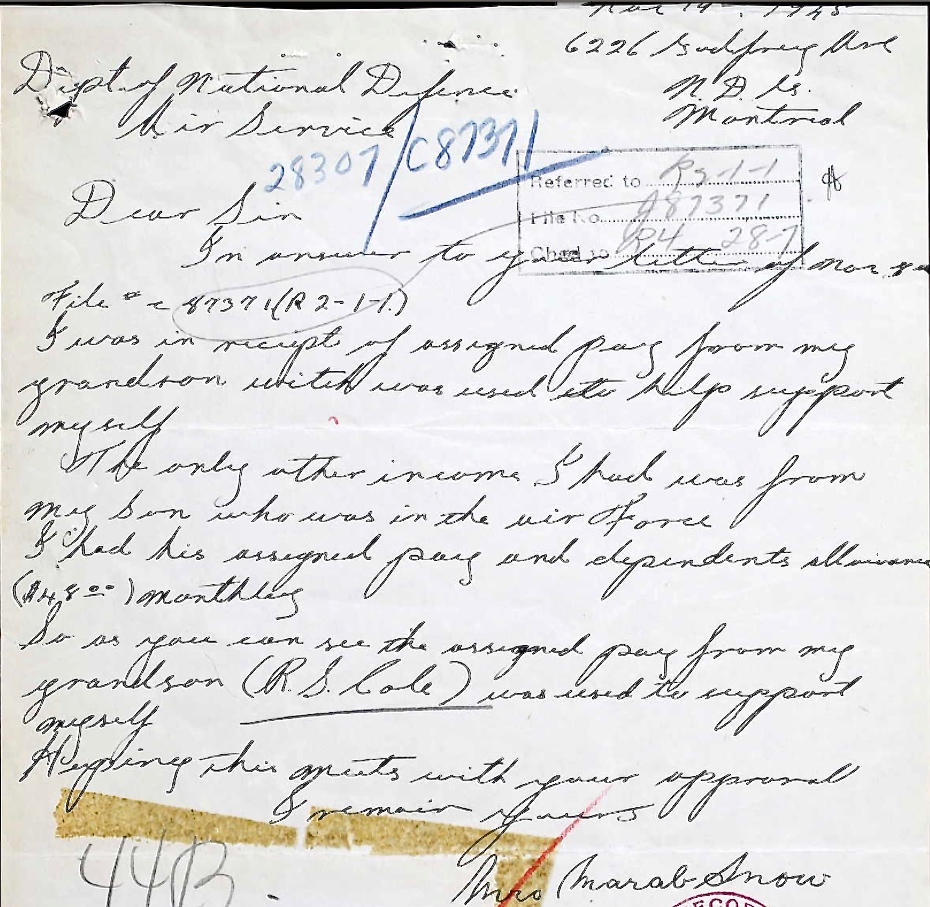 Nov 14th. 1945
6226 Godfrey Ave
Dept of National Defence
N. D. G.
Air Service
Montreal
28307/C87371
Referred to R2-1-1
Dear Sir
File No. 87371
Chgd to R4 28-7
In answer to your letter of Nov 8
File # c 87371 (R 2-1-1.)
I was in reciept of assigned pay from my
grandson witch was used to help support
myself
The only other income I had was from
my son who was in the air Force
I had his assigned pay and dependents allowance
($48.00) monthly
So as you can see the assigned pay from my
grandson (R. S. Cole) was used to support
myself
Hopeing this meets with your approval
I remain Yours
44B
Mrs Snow
RECOR